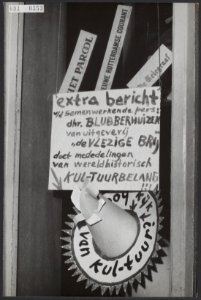 HET PAROOL
NIEUWE ROTTERDAMSE COURANT
extra bericht
v/d Samenwerkende pers:
dhr. BLUBBERHUIZEN
van uitgeverij
„de VLEZIGE BRIJ
doet mededelingen
van wereldhistorisch
KUL-TUURBELANG
!!!
van kul-tuur